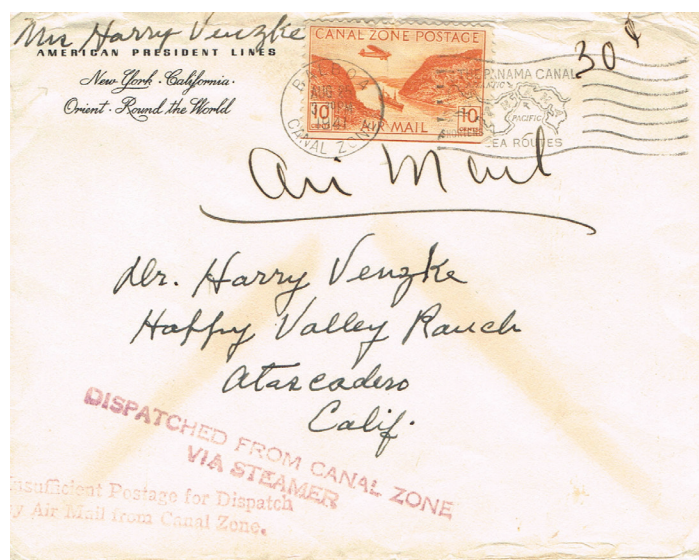 Mrs Harry Venzke
AMERICAN PRESIDENT LINES
New York · California ·
Orient · Round the World
CANAL ZONE POSTAGE
10 CENTS
AIR MAIL
10 CENTS
BALBOA
1941
CANAL ZONE
PANAMA CANAL
PACIFIC
SEA ROUTES
30¢
Air Mail
Dr. Harry Venzke
Happy Valley Ranch
Atascadero
Calif.
DISPATCHED FROM CANAL ZONE
VIA STEAMER
Insufficient Postage for Dispatch
by Air Mail from Canal Zone.